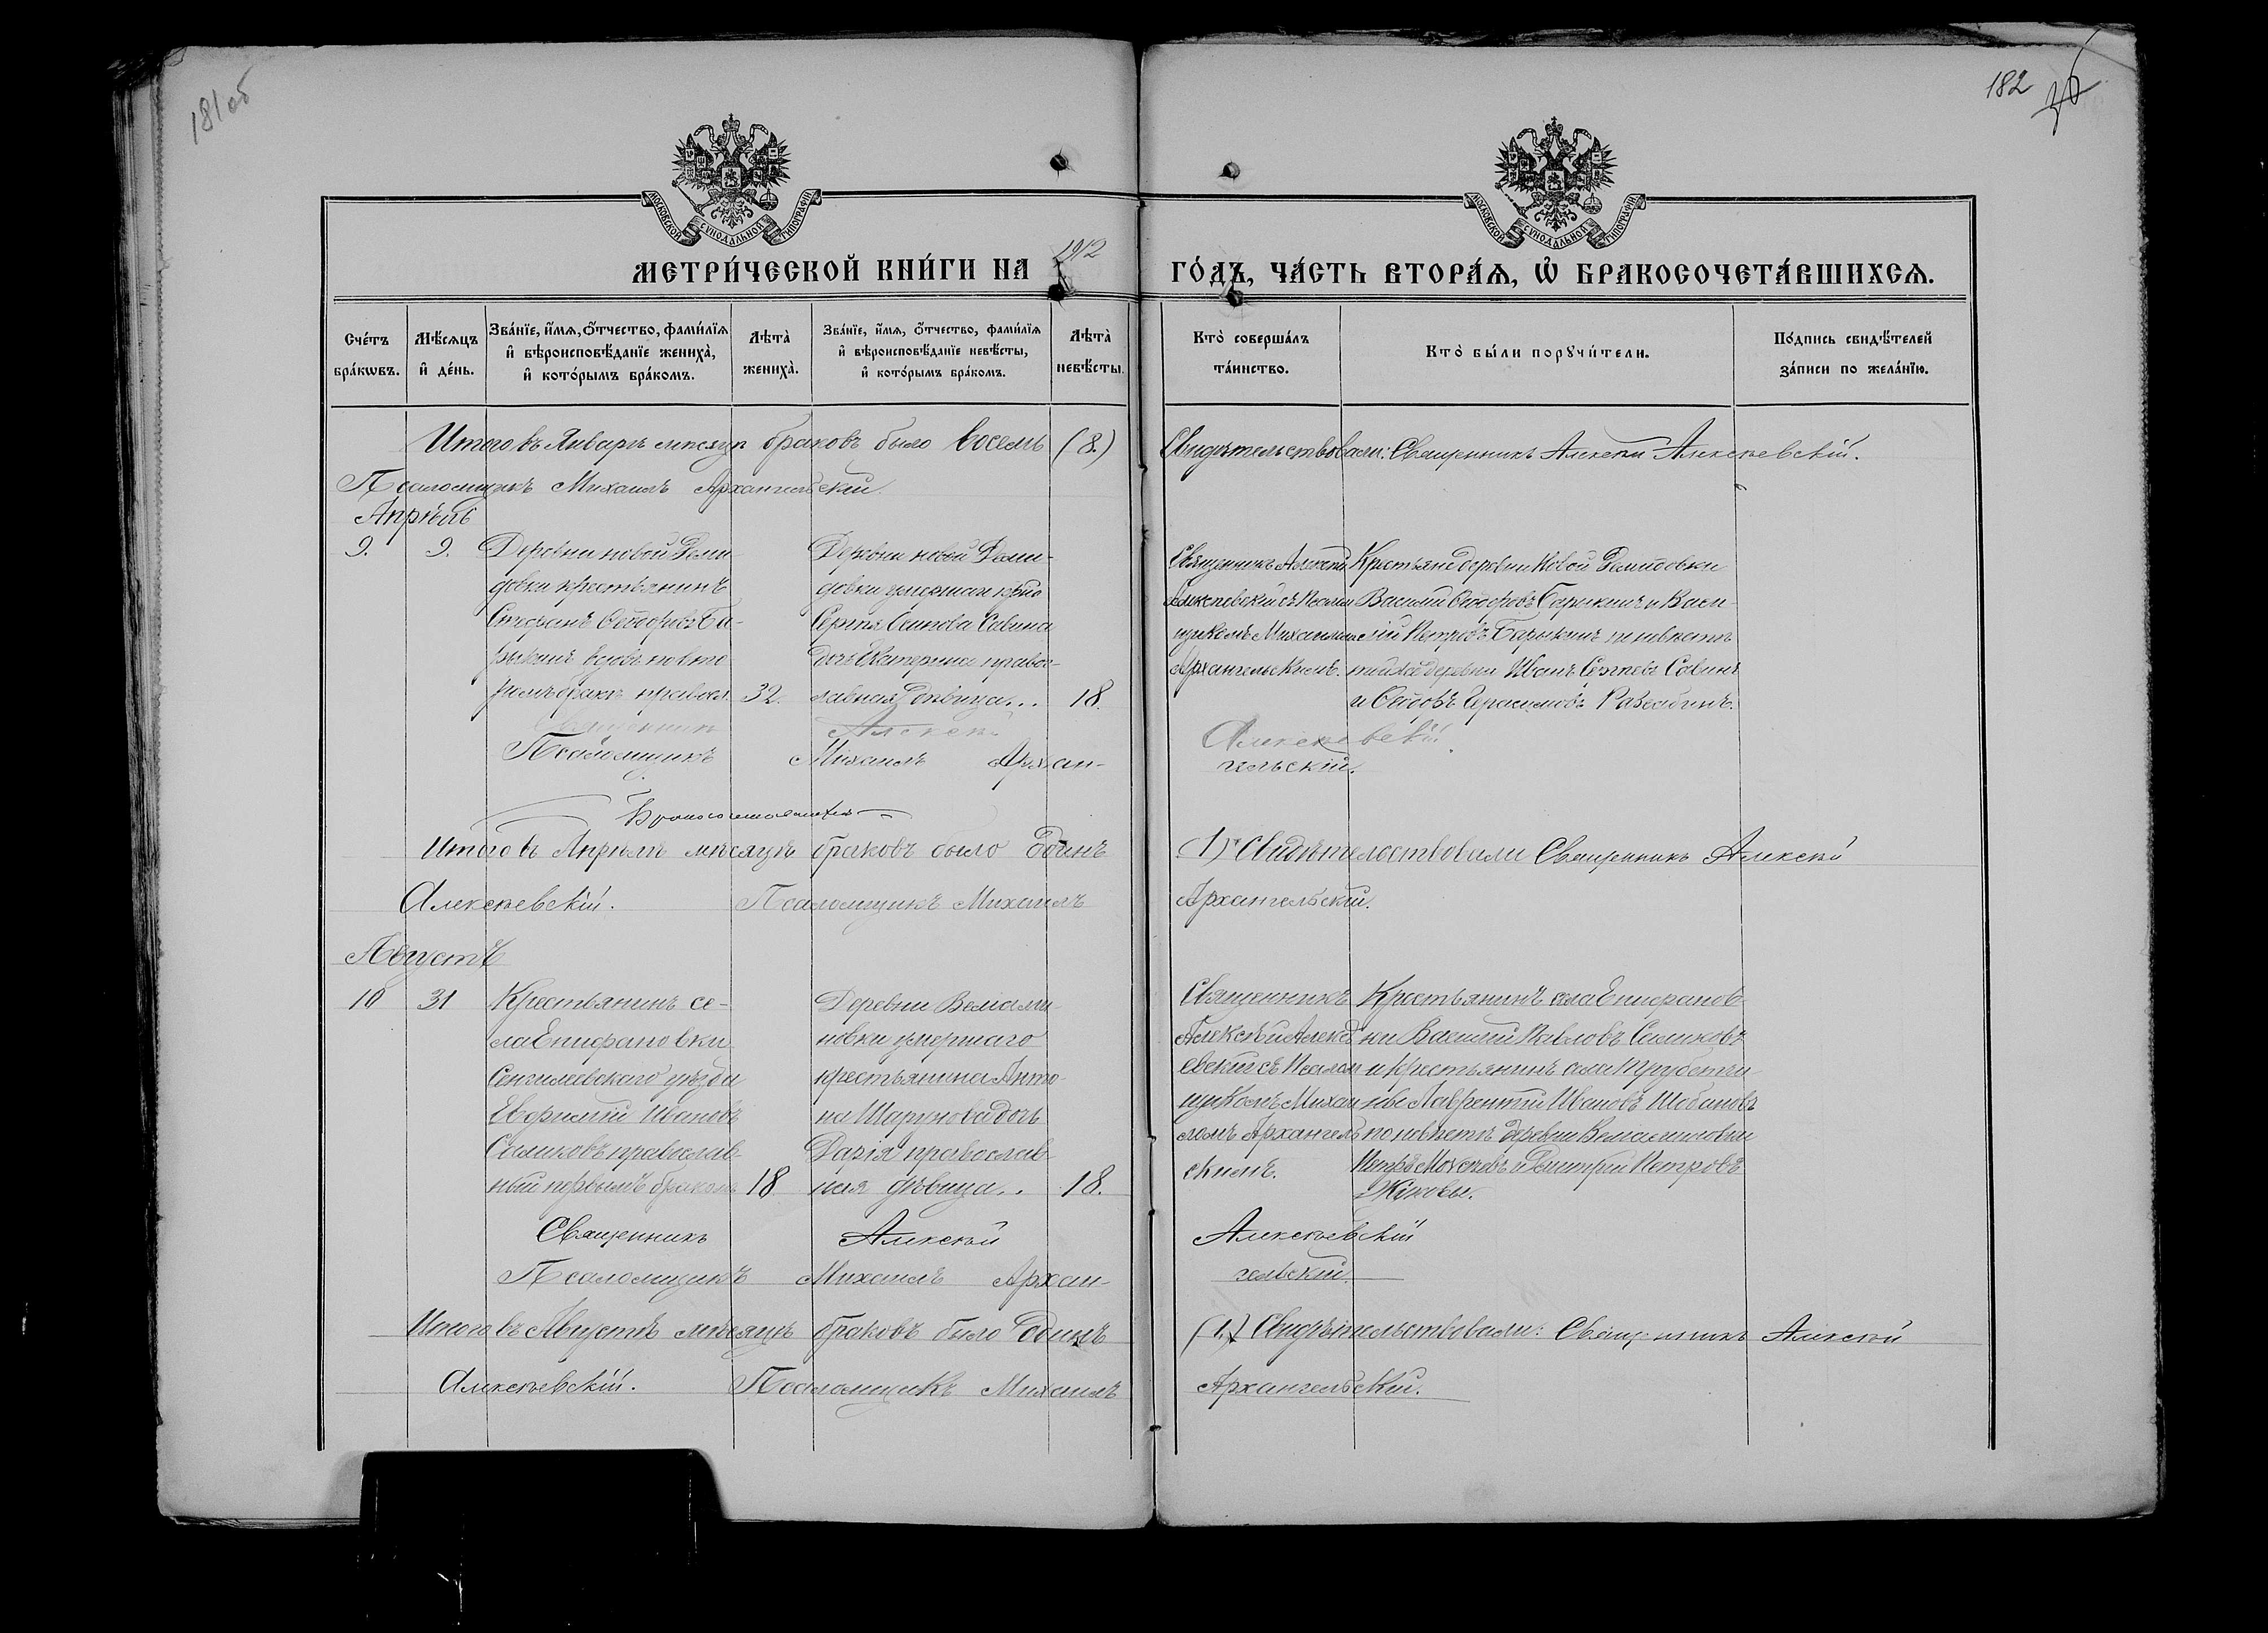 181 об
182
МОСКОВСКОЙ СѴНОДАЛЬНОЙ ТИПОГРАФІИ
МОСКОВСКОЙ СѴНОДАЛЬНОЙ ТИПОГРАФІИ
МЕТРИ́ЧЕСКОЙ КНИ́ГИ НА 1912 ГО́ДЪ, ЧА́СТЬ ВТОРА́Ѧ, Ѽ БРАКОСОЧЕТА́ВШИХСѦ.
Сче́тъ бра́кѡвъ.
Мѣ́сѧцъ и҆ де́нь.
Зва́нїе, и҆́мѧ, ѻ҆́тчество, фами́лїѧ и҆ вѣроисповѣ́данїе жениха̀, и҆ кото́рымъ бра́комъ.
Лѣта̀ жениха̀.
Зва́нїе, и҆́мѧ, ѻ҆́тчество, фами́лїѧ и҆ вѣроисповѣ́данїе невѣ́сты, и҆ кото́рымъ бра́комъ.
Лѣта̀ невѣ́сты.
Кто̀ соверша́лъ та́инство.
Кто̀ бы́ли порꙋчи́тели.
По́дпись свидѣ́телей за́писи по жела́нїю.
Итого въ Январѣ месяцѣ браковъ было восемь (8.)
Свидѣтельствовали: Священникъ Алексѣй Алексѣевскій.
Псаломщикъ Михаилъ Архангельскій
Апрѣль
9.
9.
Деревни новой Деми-
довки крестьянинъ
Стефанъ Ѳедоровъ Ба-
рыкинъ вдовъ вто
рымъ бракомъ правосл.
32.
Деревни новой Деми-
довки умершаго кр-на
Сергѣя Савина
дочь Екатерина правос-
лавная девица...
18.
Священникъ Алексѣй
Алексѣевскій съ Псалом
щикомъ Михаиломъ
Архангельскимъ.
Крестьяне деревни Новой Демидовки
Василій Ѳедоровъ Барыкинъ и Васи-
лій Петровъ Барыкинъ по невѣстѣ
той же деревни Иванъ Сергѣевъ Савинъ
и Герасимовъ
Священникъ Алексѣй Алексѣевскій
Псаломщикъ Михаилъ Архан-
гельскій.
Бракосочетавшихся
Итого въ Апрѣлѣ мѣсяцѣ браковъ было Одинъ
(1) Свидѣтельствовали Священникъ Алексѣй
Алексѣевскій. Псаломщикъ Михаилъ
Архангельскій.
Августъ
10
31
Крестьянинъ се-
ла Епифановки
Сенгилеевского уѣзда
Евфимій Ивановъ
Салиховъ православ-
ный первымъ бракомъ
18
Деревни Вельями-
новки умершаго
крестьянина Анто-
на Шарунова дочь
Дарія православ-
ная дѣвица..
18.
Священникъ
Алексѣй Алексѣ
евскій съ Псалом
щикомъ Михаи
ломъ Архангель
скимъ.
Крестьянинъ села Епифанов-
ки Василій Павловъ Салиховъ
и крестьянинъ села Трубетчи-
Лаврентій Ивановъ Шабановъ
по невѣстѣ деревни Вельяминовки
Петръ и Дмитрій Петровъ
Жуковы.
Священникъ Алексѣй
Алексѣевскій
Псаломщикъ Михаилъ Архан-
гельскій.
Итого въ Августѣ мѣсяцѣ браковъ было Одинъ
(1.) Свидѣтельствовали: Священникъ Алексѣй
Алексѣевскій. Псаломщикъ Михаилъ
Архангельскій.